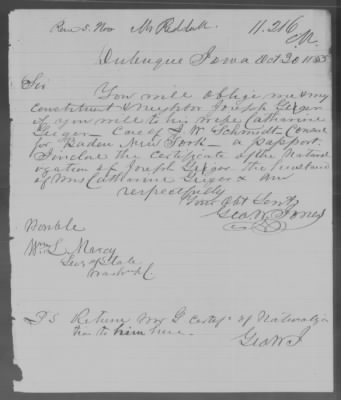 Rec 5. Nov Mr Reddall 11.216
M.
Dubuque Iowa Oct 20 1855
Sir
You will oblige me & my
constituent & neighbor Joseph Geiger
if you will to his wife Catharine
Geiger — Care of J W Schmidt Consul
for Baden New York — a passport.
I enclose the certificate of the Natural
ization of Joseph Geiger the husband
of Mrs Catharine Geiger & am
respectfully
Your Obt Servt
Geo W Jones
Honble
Wm L. Marcy
Secy of State
Wash DC
PS Return Mr G certifc of Naturaliza
tion to him here —
Geo W J